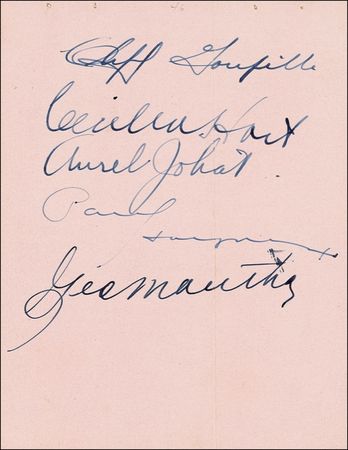 Cliff Goupille
Cecil M. Hart
Aurel Joliat
Paul
Geo Mantha